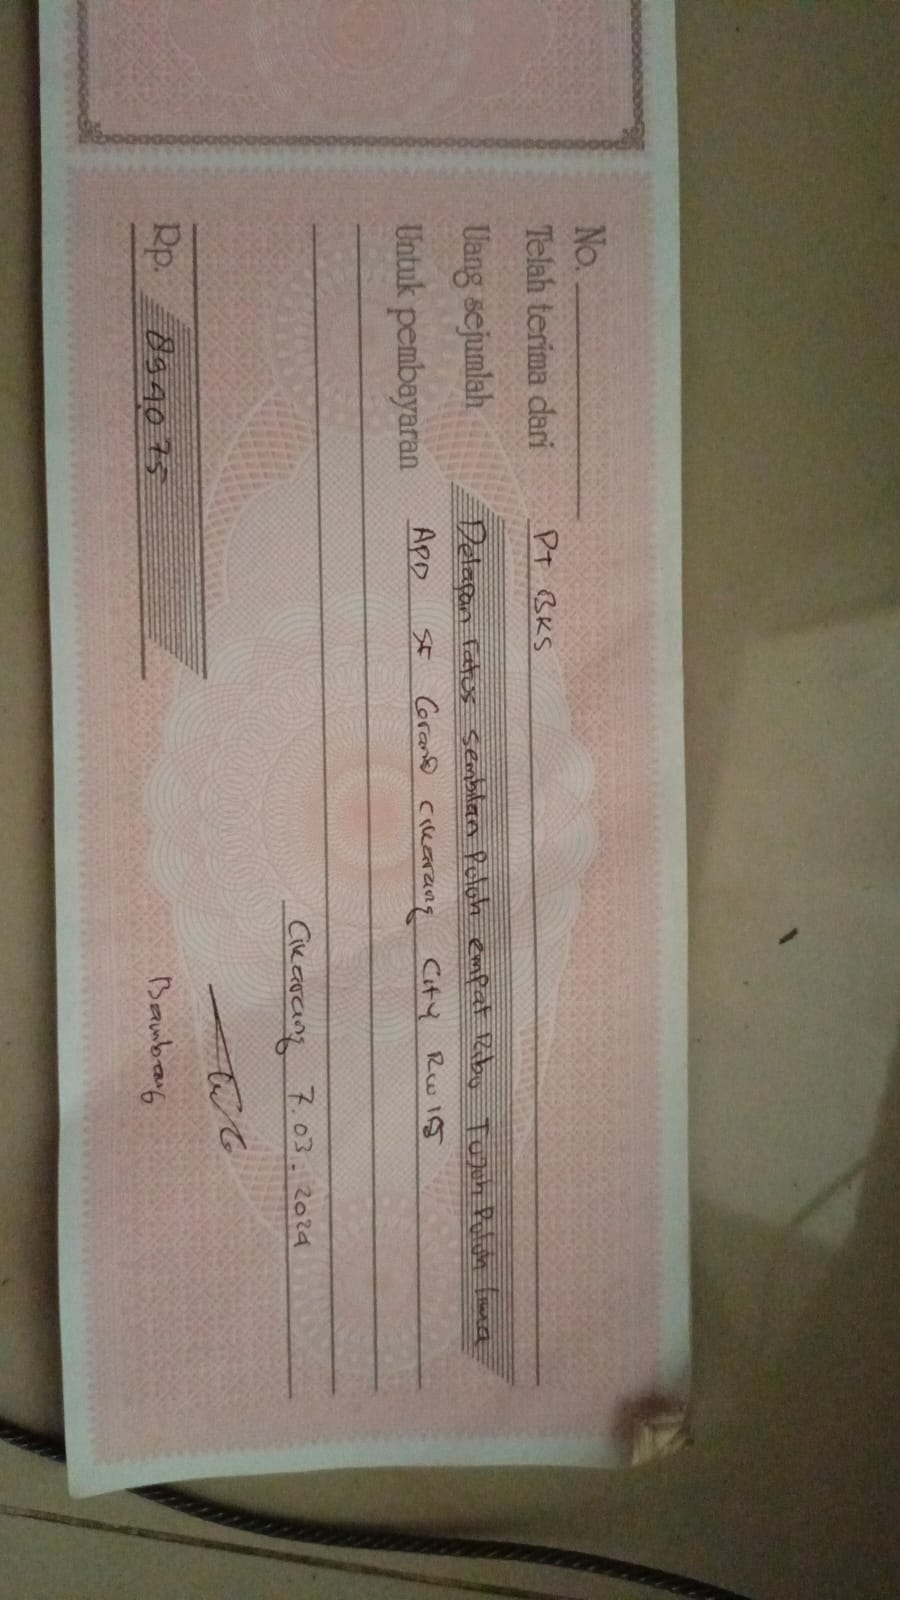 No.
Telah terima dari PT BKS
Uang sejumlah Delapan ratus sembilan puluh empat Ribu Tujuh Puluh lima
Untuk pembayaran APD SF Grand Cikarang City Rw 19
Cikarang 7.03.2024
Rp. 894.075
Bambang